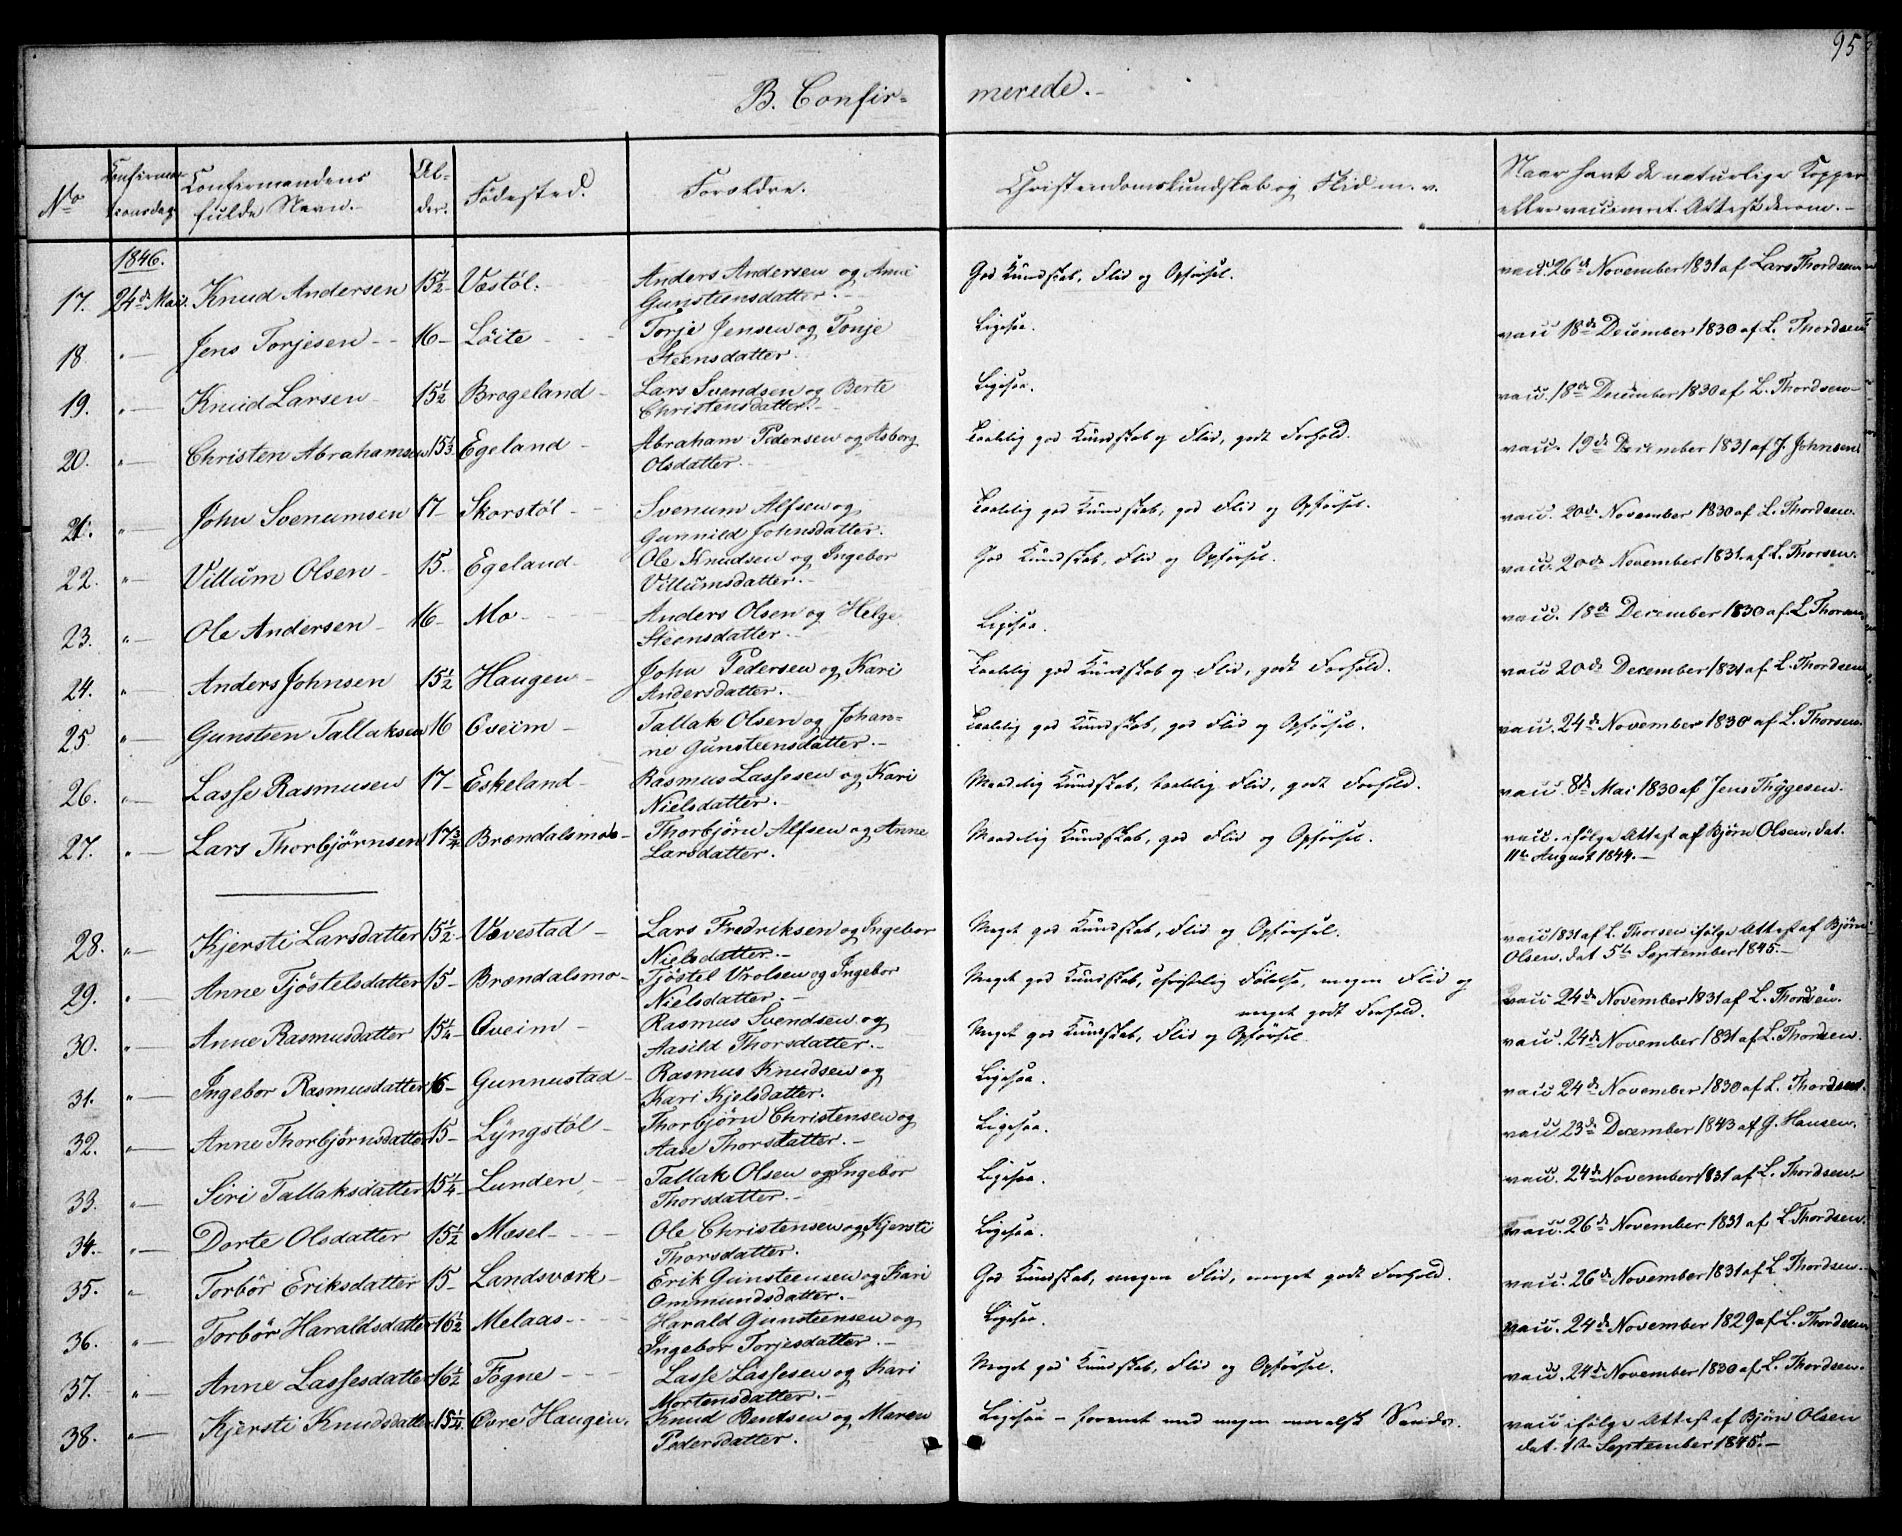 95
B. Confirmerede.
No | Confirmationsdag | Confirmandens fulde Navn. | Alder. | Födested. | Forældre. | Christendomskundskab og Flid m. v. | Naar havt de naturlige Kopper eller vaccineret. Attest derom.
1846.
17. 24de Mai. Knud Andersen 15½ Vestöl. Anders Andersen og Anne Gunsteensdatter. God Kundskab, Flid og Opförsel. vacc. 26de November 1831 af Lars Thordsen
18. " Jens Torjesen 16 Löite Torje Jensen og Tonje Steensdatter. Ligesaa. vacc 18de December 1830 af L. Thordsen
19. " Knud Larsen 15½ Brogeland Lars Svendsen og Berte Christensdatter. Ligesaa. vacc. 18de December 1830 af L. Thordsen
20. " Christen Abrahamsen 15⅓ Egeland Abraham Pedersen og Asborg Olsdatter. Taalelig god Kundskab og Flid, godt Forhold. vacc. 19de December 1831 af J. Johnsen
21. " John Svenumsen 17 Skorstöl Svenum Alfsen og Gunnild Johnsdatter. Taalelig god Kundskab, god Flid og Opförsel. vacc. 20de November 1830 af L. Thordsen.
22. " Villum Olsen 15. Egeland Ole Knudsen og Ingebor Villumsdatter. God Kundskab, Flid og Opförsel. vacc. 20de November 1831. af L. Thorsen.
23. " Ole Andersen 16 Mo Anders Olsen og Helge Steensdatter. Ligesaa. vacc. 18de December 1830 af L Thorsen
24. " Anders Johnsen 15½ Haugen John Pedersen og Kari Andersdatter. Taalelig god Kundskab og Flid, godt Forhold. vacc 20de December 1831 af L. Thordsen
25 " Gunsten Tallaksen 16 Oveim Tallak Olsen og Johanne Gunsteensdatter. Taalelig god Kundskab, god Flid og Opförsel. vacc. 24de November 1830 af L. Thorsen.
26. " Lasse Rasmusen 17 Eskeland Rasmus Lassesen og Kari Nielsdatter. Maadelig Kundskab, taalelig Flid, godt Forhold. vacc. 8de Mai 1830 af Jens Thygesen.
27. " Lars Thorbjørnsen 17¾ Brændalsmoe Thorbjörn Alfsen og Anne Larsdatter. Maadelig Kundskab, god Flid og Opförsel. vacc. ifölge Attest af Bjørn Olsen, dat. 11te August 1844.
28. " Kjersti Larsdatter 15½ Vævestad Lars Fredriksen og Ingebor Nielsdatter. Meget god Kundskab, Flid og Opförsel. vacc 1831 af L. Thorsen ifölge Attest af Bjørn Olsen, dat 5te September 1845.
29. " Anne Tjöstelsdatter 15 Brændalsmo Tjöstel Vrolsen og Ingebor Nielsdatter. Meget god Kundskab, christelig Fölelse, megen Flid og meget godt Forhold. vacc 24de November 1831 af L. Thordsen.
30. " Anne Rasmusdatter 15¼ Oveim Rasmus Svendsen og Aasild Thorsdatter. Meget god Kundskab, Flid og Opförsel. vacc. 24de November 1831 af L. Thordsen.
31. " Ingebor Rasmusdatter 16 Gunnustad Rasmus Knudsen og Kari Kjelsdatter. Ligesaa. vacc 24de November 1830 af L. Thordsen.
32. " Anne Thorbjörnsdatter 15 Lyngstöl Thorbjörn Christensen og Aase Thorsdatter. Ligesaa. vacc 23de December 1843 af G. Hansen.
33. " Siri Tallaksdatter 15¼ Lunden Tallak Olsen og Ingebor Thorsdatter. Ligesaa. vacc. 24de November 1831 af L. Thordsen.
34. " Dorte Olsdatter 15½ Mosel Ole Christensen og Kjersti Thorsdatter. Ligesaa. vacc. 26de November 1831 af L Thordsen.
35. " Torbör Eriksdatter 15 Landsværk Erik Gunsteensen og Kari Ommundsdatter. God Kundskab, megen Flid, meget godt Forhold. vacc. 26de November 1831 af L Thordsen.
36. " Torbör Haraldsdatter 16½ Melaas Harald Gunsteensen og Ingebor Torjesdatter. Ligesaa. vacc. 24de November 1829 af L. Thordsen
37. " Anne Lassesdatter 16½ Fogne Lasse Lassesen og Kari Mortensdatter. Meget god Kundskab, Flid og Opförsel. vacc. 24de November 1830 af L. Thordsen.
38. " Kjersti Knudsdatter 15¼ Övre Haugen. Knud Bentsen og Maren Pedersdatter. Ligesaa – forenet med megen moralsk Sands. vacc ifölge Attest af Bjørn Olsen dat. 1te September 1845.